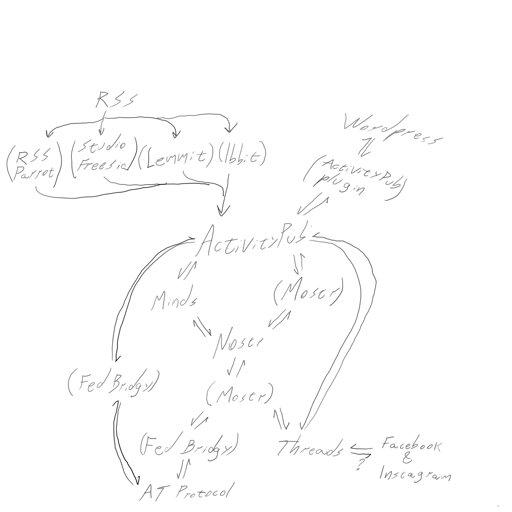 RSS
Wordpress
(RSS
Parrot)
(Studio
Freesia)
(Lemmit)
(lbbit)
(ActivityPub
plugin)
ActivityPub
Minds
(Mostr)
Nostr
(Fed Bridgy)
(Mostr)
(Fed Bridgy)
Threads
?
Facebook
&
Instagram
AT Protocol